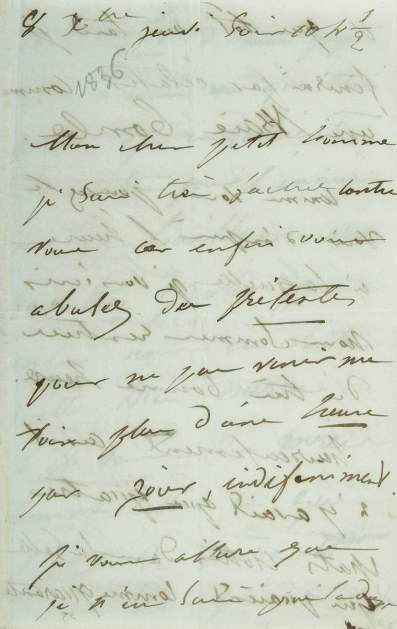 8 Xbre jeudi soir 10 h ½
1836
Mon cher petit homme
je suis très fâchée contre
vous car enfin vous
abusez des prétextes
pour ne pas venir me
voir plus d'une heure
par jour, indifféremment
je vous assure que
je n'en suis